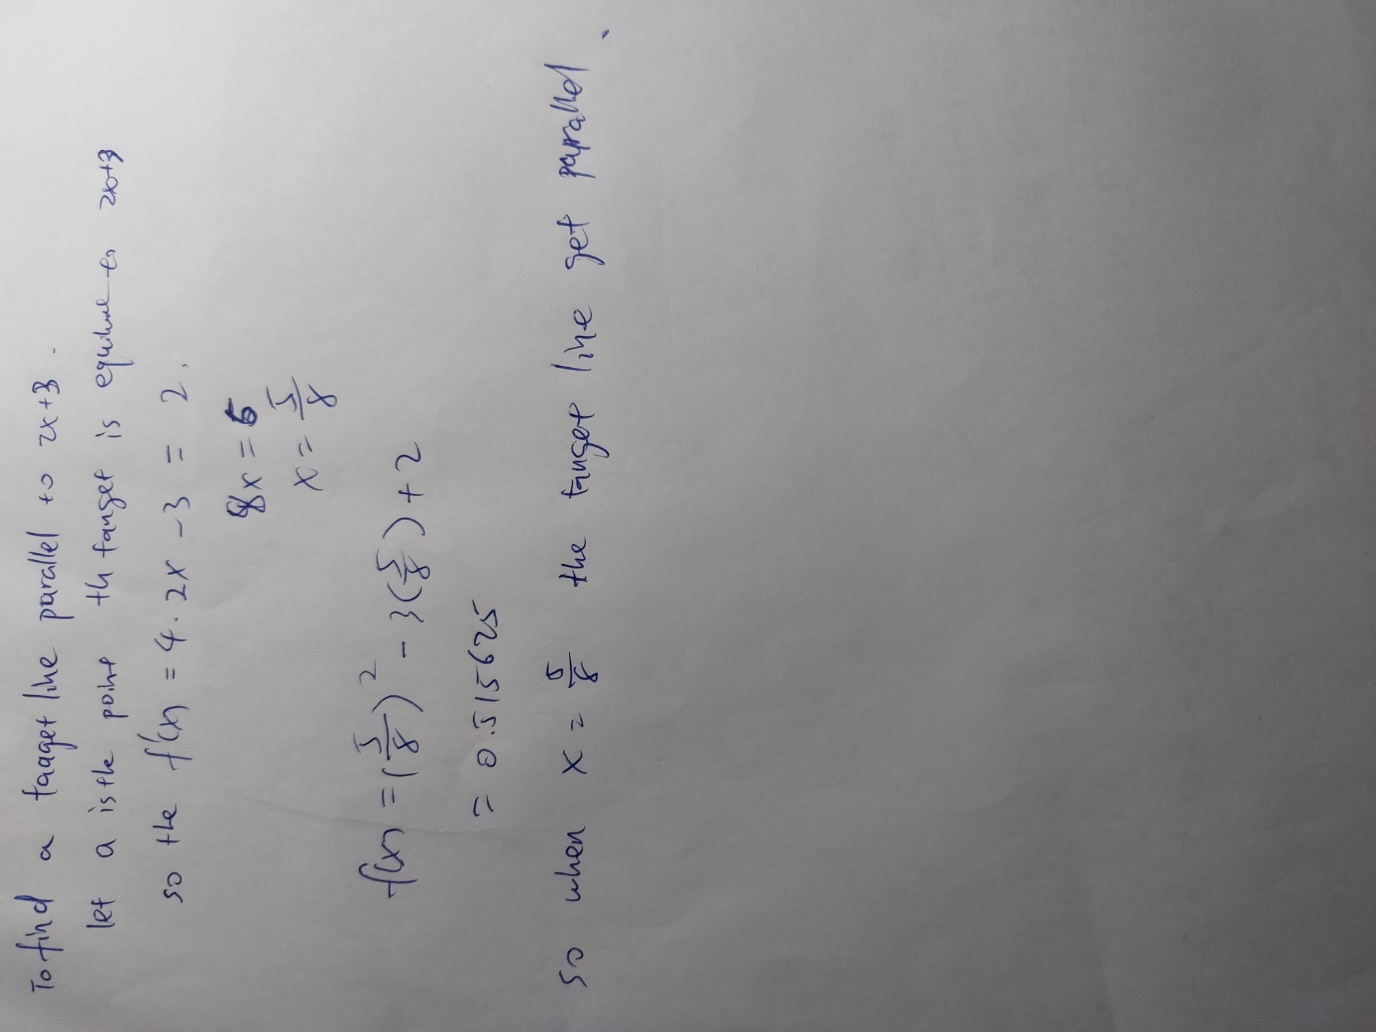 To find a taaget line parallel to 2x+3.
let a is the point th tanget is equilune to 2x+3
so the f'(x) = 4.2x -3 = 2.
8x = 5
x = 5/8
f(x) = (5/8)^2 - 3(5/8) + 2
= 0.515625
so when x = 5/8 the tanget line get parallel.